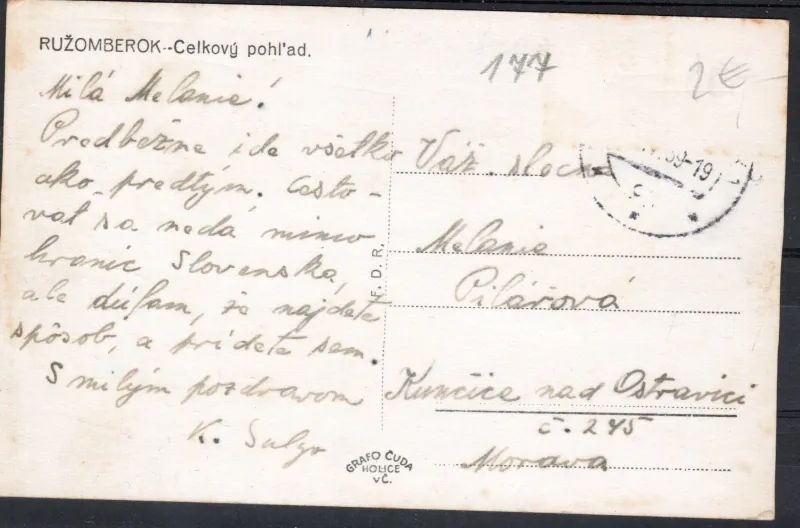 RUŽOMBEROK--Celkový pohľad.
177
2€-
Milá Melanie!
Predbežne ide všetko
ako predtým. Cesto-
vať sa nedá mimo
hraníc Slovenska,
ale dúfam, že najdete
spôsob, a prídete sem.
S milým pozdravom
K.
F. D. R.
GRAFO ČUDA
HOLICE
VČ.
39-19
Váž. slečna
Melanie
Pilářová
Kunčice nad Ostravicí
č. 245
Morava